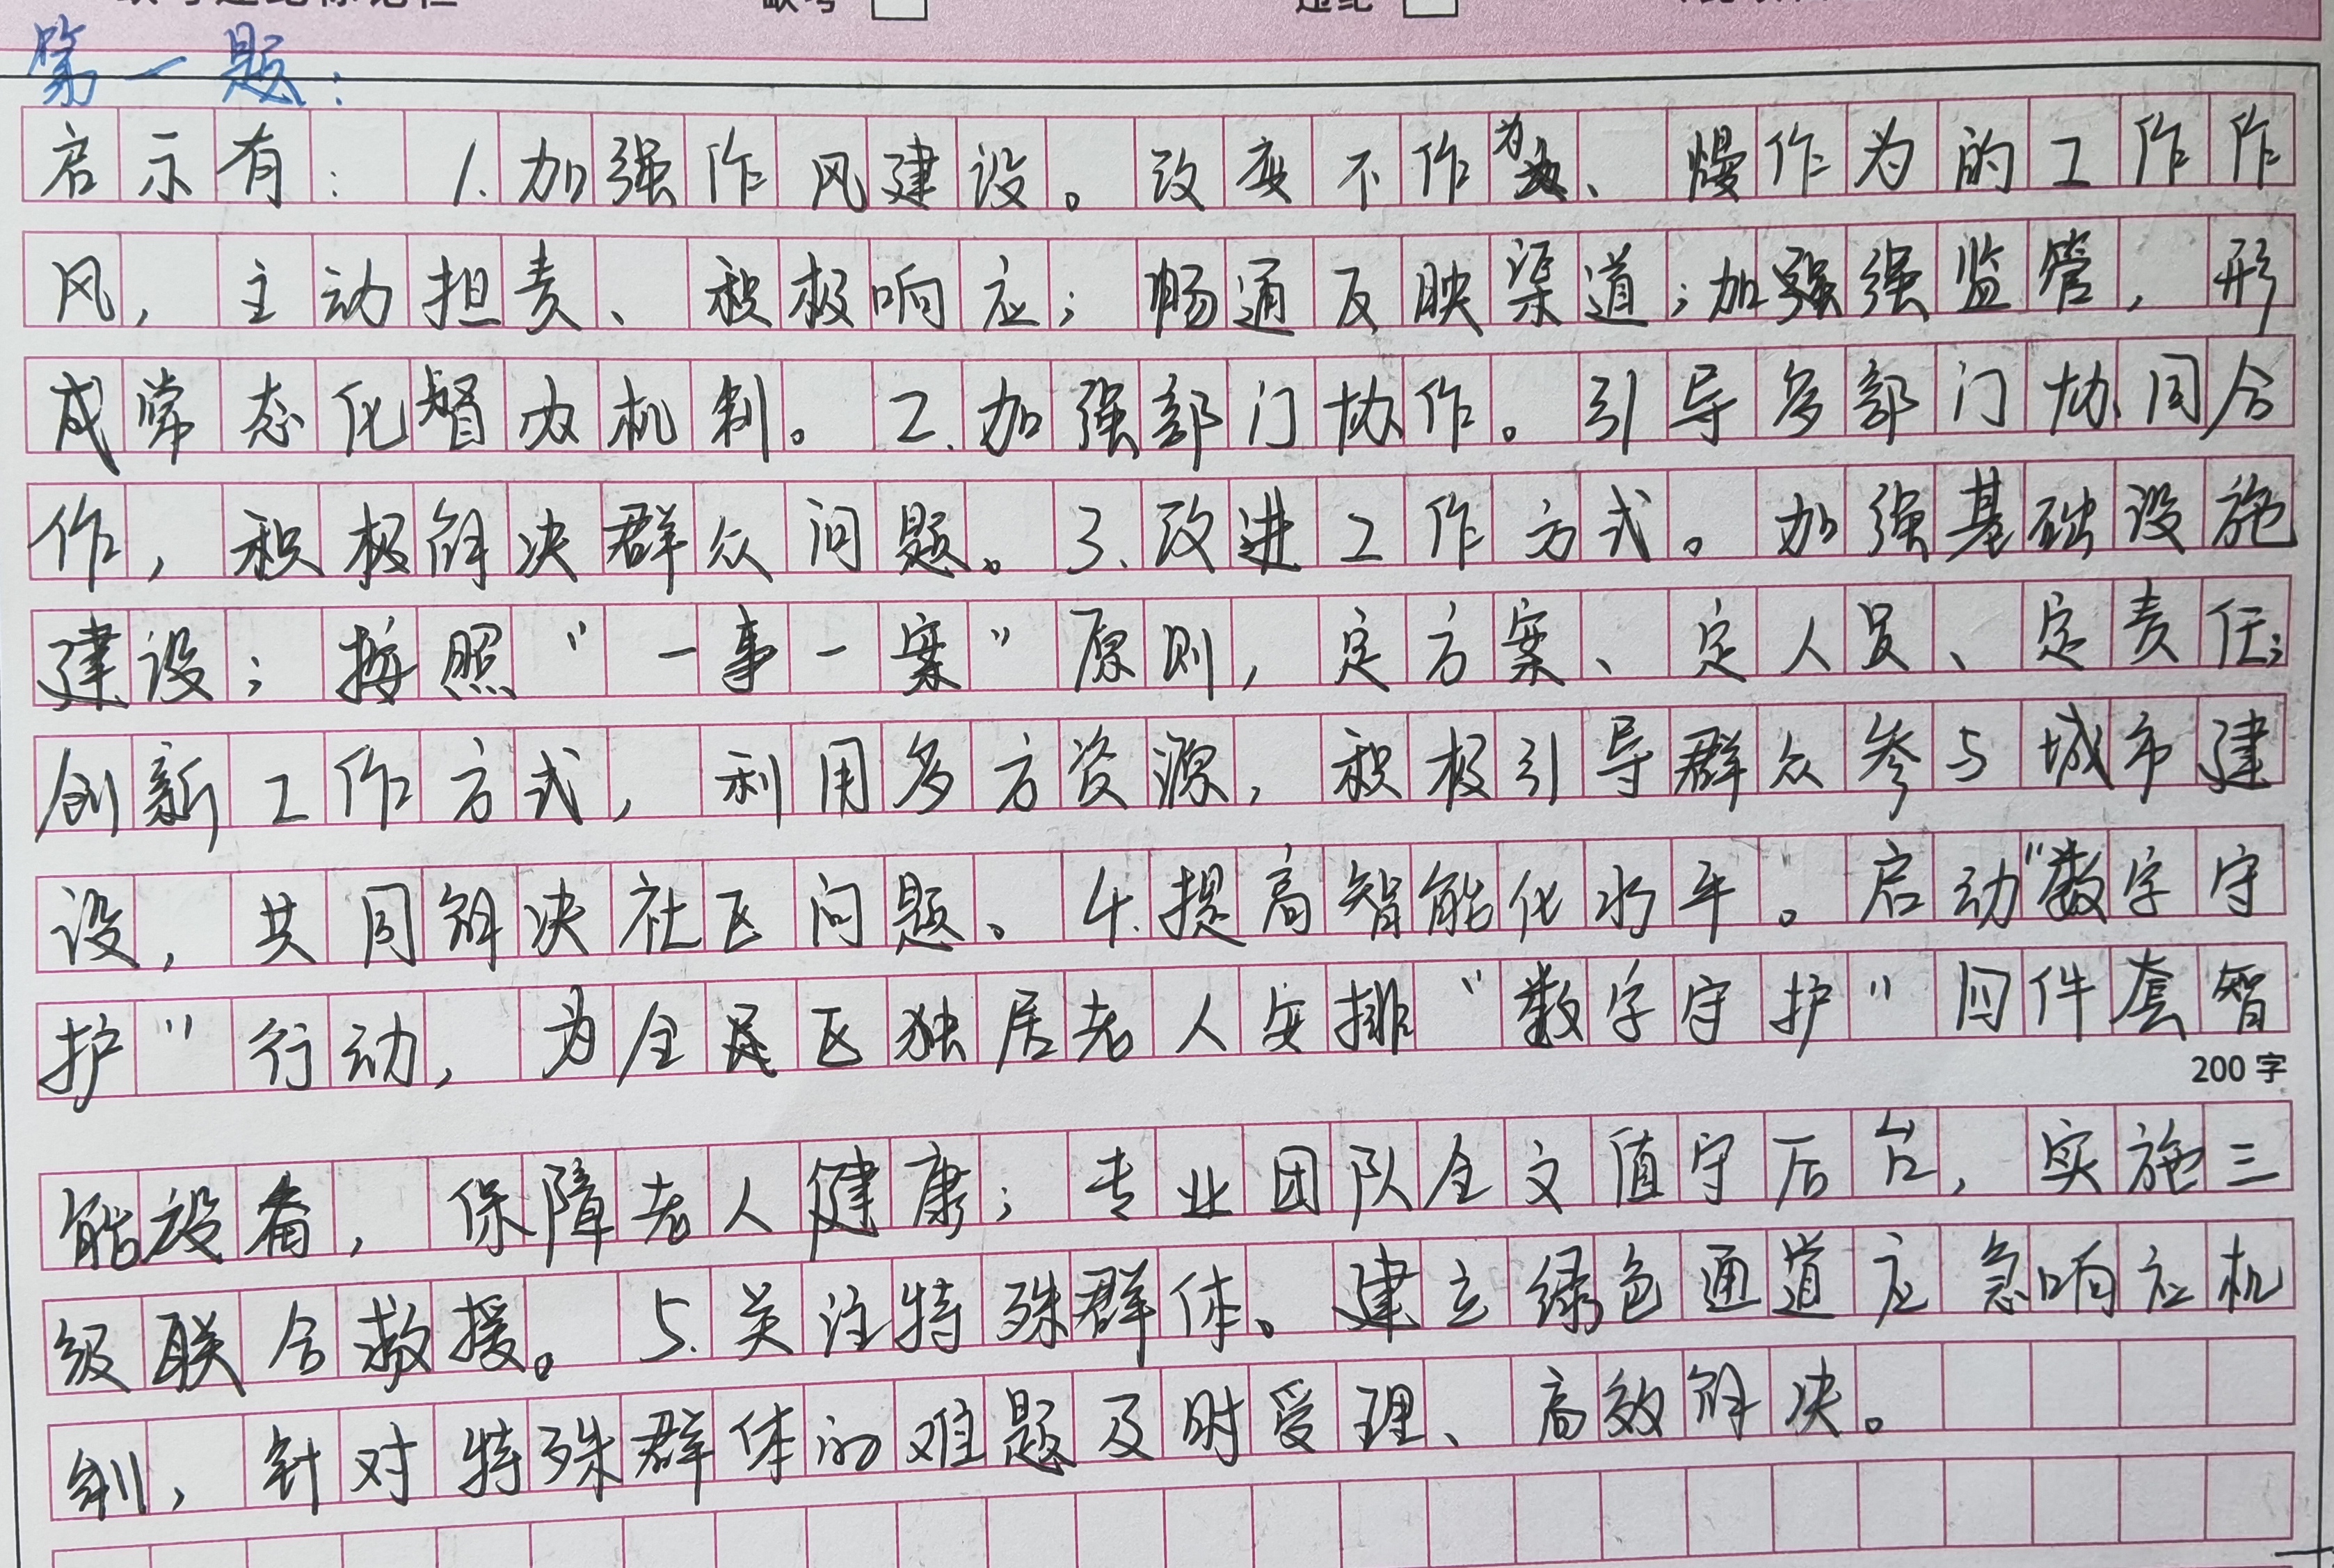 第一题：
启示有：1.加强作风建设。改变不作为、慢作为的工作作
风，主动担责、积极响应；畅通反映渠道；加强强监管，形
成常态化督办机制。2.加强部门协作。引导多部门协同合
作，积极解决群众问题。3.改进工作方式。加强基础设施
建设；按照“一事一案”原则，定方案、定人员、定责任；
创新工作方式，利用多方资源，积极引导群众参与城市建
设，共同解决社区问题。4.提高智能化水平。启动“数字守
护”行动，为全区独居老人安排“数字守护”四件套智
200字
能设备，保障老人健康；专业团队全文值守后台，实施三
级联合救援。5.关注特殊群体。建立绿色通道应急响应机
制，针对特殊群体的难题及时受理、高效解决。